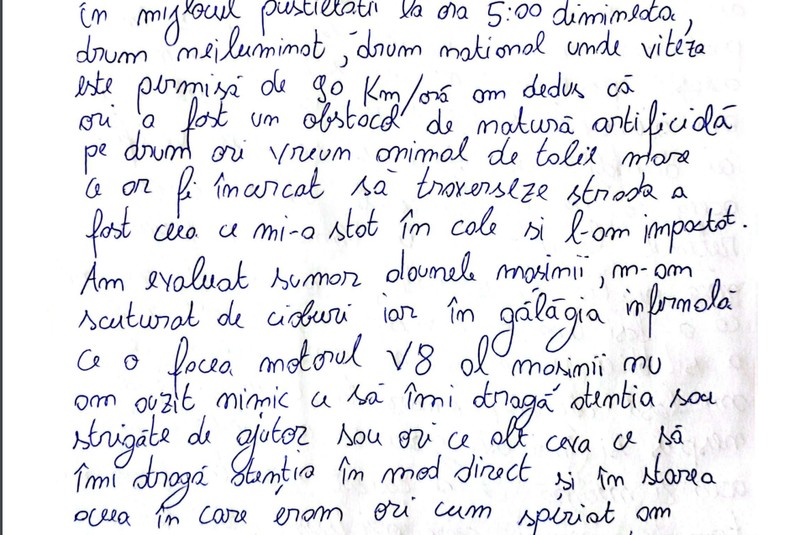 în mijlocul pustietatii la ora 5:00 dimineata,
drum neiluminat, drum national unde viteza
este permisă de 90 Km/oră am dedus că
ori a fost un obstacol de natură artificială
pe drum ori vreun animal de talie mare
ce ar fi încarcat să traverseze strada a
fost ceea ce mi-a stat în cale si l-am impactat.
Am evaluat sumar daunele masinii, m-am
scuturat de cioburi iar în gălăgia infernală
ce o facea motorul V8 al masinii nu
am auzit nimic ce să îmi atragă atentia sau
strigăte de ajutor sau ori ce alt ceva ce să
îmi atragă atenția în mod direct si în starea
aceea în care eram ori cum speriat am